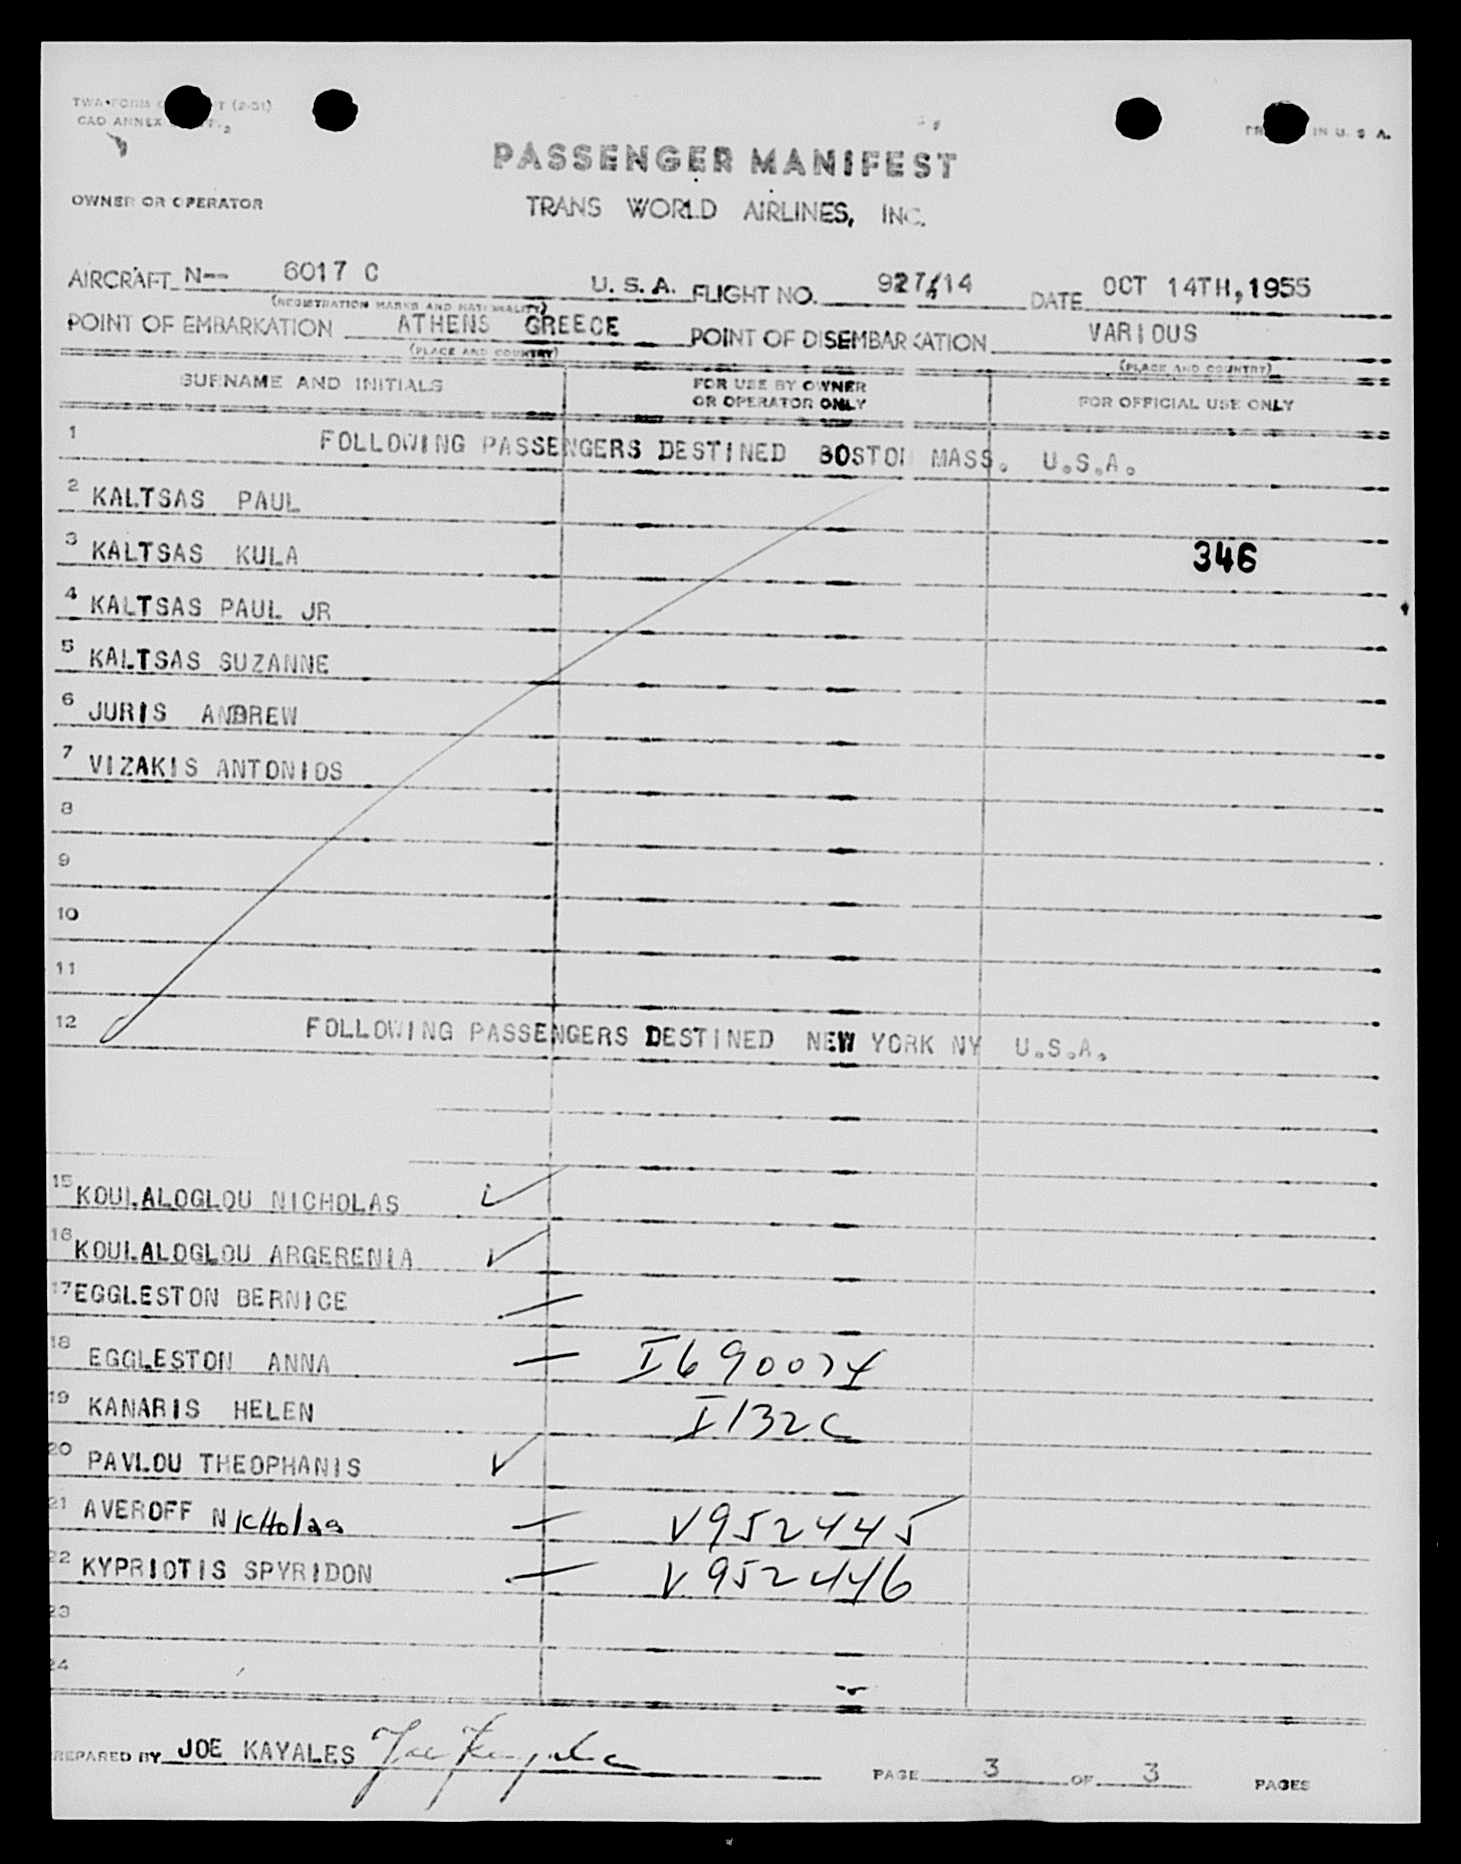 PASSENGER MANIFEST
OWNER OR OPERATOR TRANS WORLD AIRLINES, INC.
AIRCRAFT N-- 6017 C U. S. A. FLIGHT NO. 927/14 DATE OCT 14TH, 1955
(REGISTRATION MARKS AND NATIONALITY)
POINT OF EMBARKATION ATHENS GREECE POINT OF DISEMBARKATION VARIOUS
(PLACE AND COUNTRY) (PLACE AND COUNTRY)
SURNAME AND INITIALS FOR USE BY OWNER OR OPERATOR ONLY FOR OFFICIAL USE ONLY
1 FOLLOWING PASSENGERS DESTINED BOSTON MASS. U.S.A.
2 KALTSAS PAUL
3 KALTSAS KULA 346
4 KALTSAS PAUL JR
5 KALTSAS SUZANNE
6 JURIS ANDREW
7 VIZAKIS ANTONIOS
8
9
10
11
12 FOLLOWING PASSENGERS DESTINED NEW YORK NY U.S.A.
15 KOULALOGLOU NICHOLAS
16 KOULALOGLOU ARGERENIA
17 EGGLESTON BERNICE
18 EGGLESTON ANNA I690074
19 KANARIS HELEN I132C
20 PAVLOU THEOPHANIS
21 AVEROFF NICHOlas V952445
22 KYPRIOTIS SPYRIDON V952446
23
24
PREPARED BY JOE KAYALES PAGE 3 OF 3 PAGES